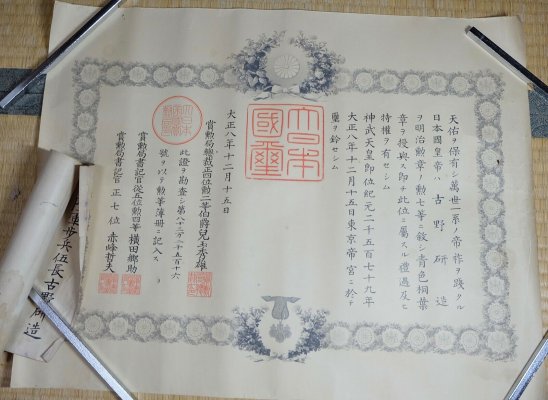 天佑ヲ保有シ萬世一系ノ帝祚ヲ踐タル
日本國皇帝ハ古野研造
ヲ明治勲章ノ勲七等ニ敍シ青色桐葉
章ヲ授與ス即チ此位ニ屬スル禮遇及ヒ
特權ヲ有セシム
神武天皇即位紀元二千五百七十九年
大正八年十二月十五日東京帝宮ニ於テ
璽ヲ鈐セシム
大日本國璽
大正八年十二月十五日
賞勲局總裁正四位勲二等伯爵兒玉秀雄
此證ヲ勘査シ第八十二万二千五百十六
號ヲ以テ勲等簿册ニ記入ス
賞勲局書記官從五位勲四等横田郷助
賞勲局書記官正七位赤峰哲夫
歩兵伍長古野研造